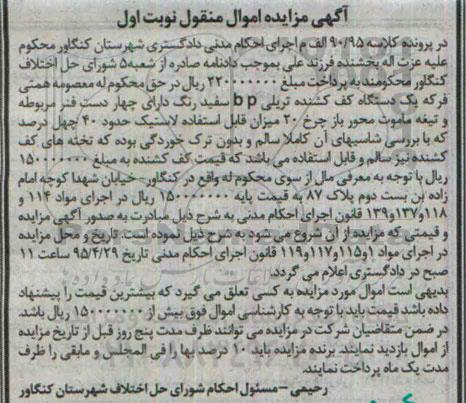 آگهی مزایده اموال منقول نوبت اول
در پرونده کلاسه ۹۰/۹۵ الف م اجرای احکام مدنی دادگستری شهرستان کنگاور محکوم
علیه عزت اله بخشنده فرزند علی بموجب دادنامه صادره از شعبه۵ شورای حل اختلاف
کنگاور محکومند به پرداخت مبلغ ۲۲۰۰۰۰۰۰۰ ریال در حق محکوم له معصومه همتی
فر که یک دستگاه کف کشنده تریلی b p سفید رنگ دارای چهار دست فنر مربوطه
و تیغه ماموت محور باز چرخ ۲۰ میزان قابل استفاده لاستیک حدود ۴۰ چهل درصد
که با بررسی شاسیهای آن کاملا سالم و بدون ترک خوردگی بوده که تخته های کف
کشنده نیز سالم و قابل استفاده می باشد که قیمت کف کشنده به مبلغ ۱۵۰۰۰۰۰۰۰
ریال با توجه به معرفی مال از سوی محکوم له واقع در کنگاور - خیابان شهدا کوچه امام
زاده بن بست دوم پلاک ۸۷ به قیمت پایه ۱۵۰۰۰۰۰۰۰ ریال در اجرای مواد ۱۱۴ و
۱۱۸و۱۳۷و۱۳۹ قانون اجرای احکام مدنی به شرح ذیل مبادرت به صدور آگهی مزایده
و قیمتی که مزایده از آن شروع می شود به شرح ذیل نموده است. تاریخ و محل مزایده
در اجرای مواد ۱و۱۱۵و۱۱۷و۱۱۹ قانون اجرای احکام مدنی تاریخ ۹۵/۴/۲۹ ساعت ۱۱
صبح در دادگستری اعلام می گردد.
بدیهی است اموال مورد مزایده به کسی تعلق می گیرد که بیشترین قیمت را پیشنهاد
داده باشد قیمت باید با توجه به کارشناسی اموال فوق بیش از ۱۵۰۰۰۰۰۰۰ ریال باشد.
در ضمن متقاضیان شرکت در مزایده می توانند ظرف مدت پنج روز قبل از تاریخ مزایده
از اموال بازدید نمایند. برنده مزایده باید ۱۰ درصد بها را فی المجلس و مابقی را ظرف
مدت یک ماه پرداخت نمایند.
رحیمی - مسئول احکام شورای حل اختلاف شهرستان کنگاور